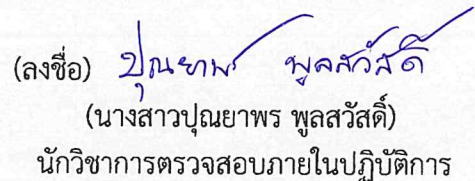 (ลงชื่อ) ปุณยาพร พูลสวัสดิ์
(นางสาวปุณยาพร พูลสวัสดิ์)
นักวิชาการตรวจสอบภายในปฏิบัติการ